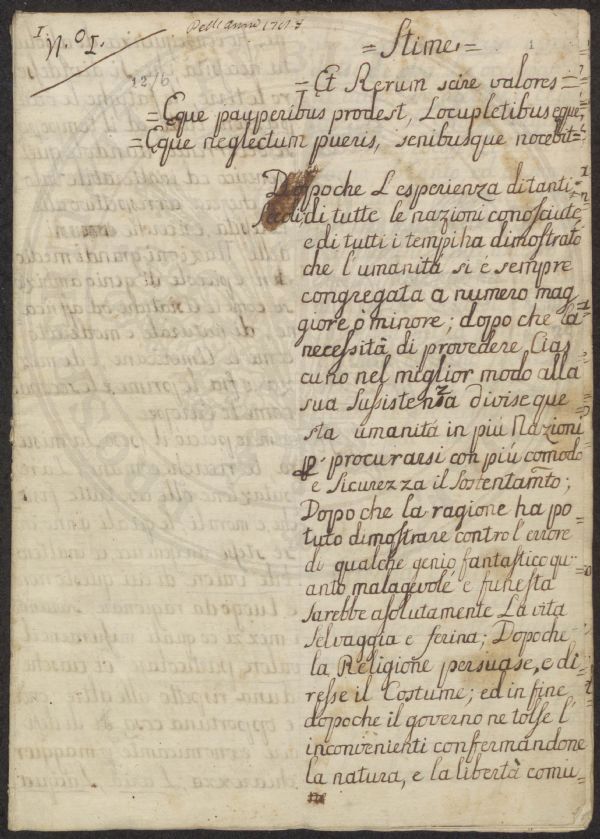 I
N.º I.
Dell' Anno
1216
1
= Stime, =
= Et Rerum scire valores =
= Eque pauperibus prodest, Locupletibus eque,
= Eque neglectum pueris, senibusque nocebit =
Dopoche L'esperienza di tanti
secoli, di tutte le nazioni conosciute
e di tutti i tempi ha dimostrato
che l'umanità si é sempre
congregata a numero mag
giore, ò minore; dopo che la
necessità di provedere Cias
cuno nel miglior modo alla
sua Susistenza divise que
sta umanità in più Nazioni
p procurarsi con più comodo
e Sicurezza il Sostentamto;
Dopo che la ragione ha po
tuto dimostrare contro l'errore
di qualche genio fantastico qu=
anto malagevole e funesta
sarebbe asolutamente La vita
selvaggia e ferina; Dopoche
la Religione persuase, e di
resse il Costume; ed in fine
dopoche il governo ne tolse l'
inconvenienti confermandone
la natura, e la libertà comu
ne